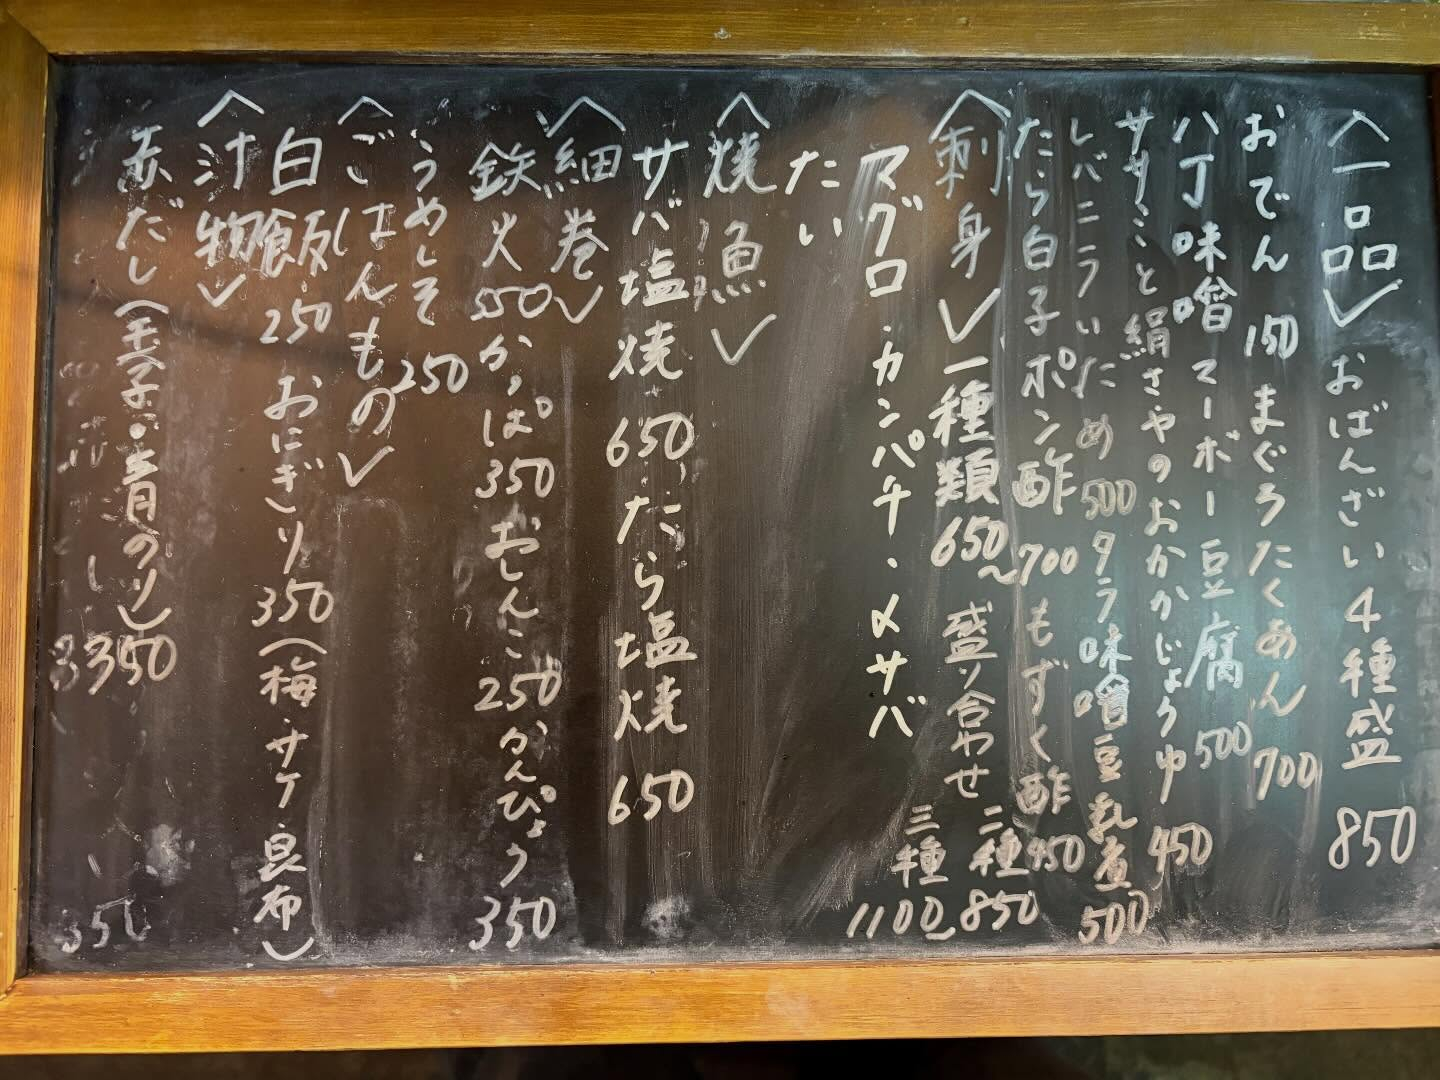 〈一品〉おばんざい4種盛 850
おでん 150 まぐろたくあん 700
八丁味噌マーボー豆腐 500
ササミと絹さやのおかかじょうゆ 450
レバニラいため 500 タラ味噌豆乳煮 500
たら白子ポン酢 700 もずく酢 450
〈刺身〉一種類 650〜 盛り合わせ 二種 850 三種 1100〜
マグロ・カンパチ・〆サバ
たい
〈焼魚〉
サバ塩焼 650 たら塩焼 650
〈細巻〉
鉄火 550 かっぱ 350 おしんこ 250 かんぴょう 350
うめしそ 250
〈ごはんもの〉
白飯 250 おにぎり 350（梅・サケ・昆布）
〈汁物〉
赤だし（玉子・青のり）350
350